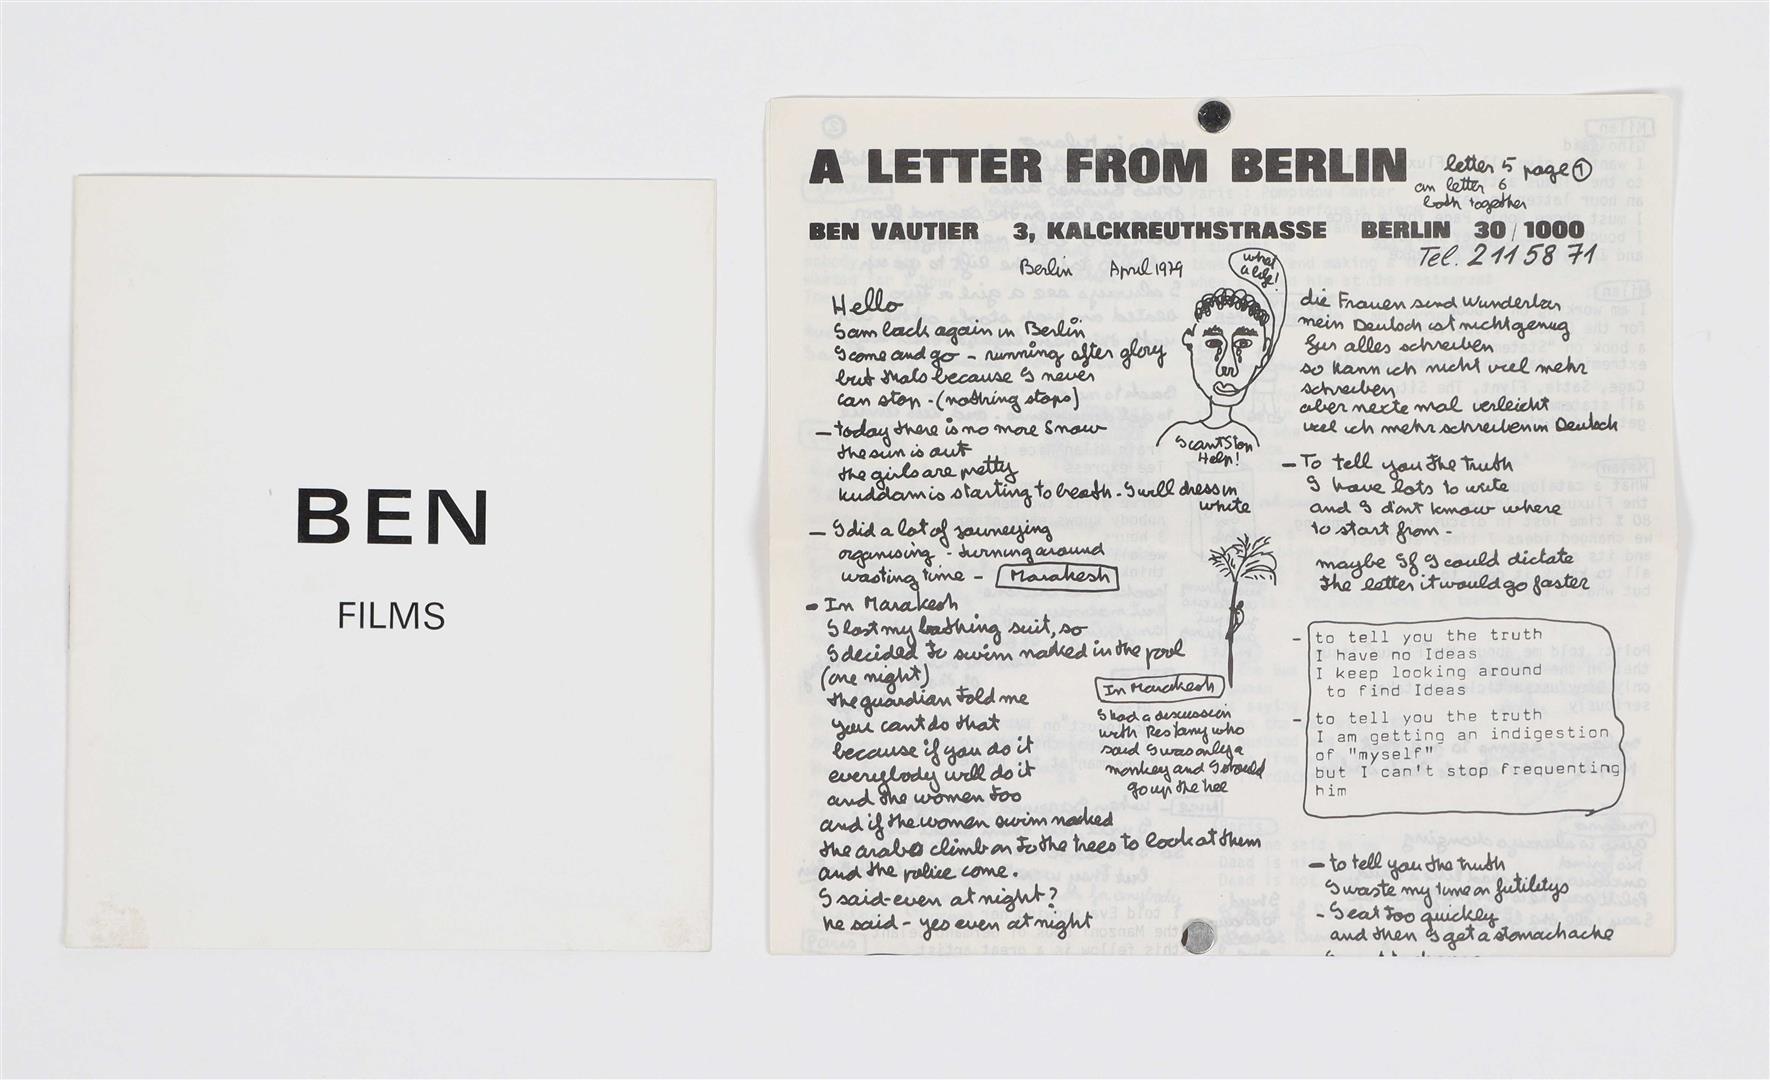 BEN
FILMS
A LETTER FROM BERLIN
letter 5 page 1
an letter 6
both together
BEN VAUTIER 3, KALCKREUTHSTRASSE BERLIN 30/1000
Tel. 211 58 71
Berlin April 1979
what
a life!
I cant Stop
Help!
Hello
I am back again in Berlin
I come and go - running after glory
but thats because I never
can stop - (nothing stops)
- today there is no more Snow
the sun is out
the girls are pretty
kuddam is starting to breath - I will dress in
white
- I did a lot of journeying
organising - turning around
wasting time - Marakesh
- In Marakesh
I lost my bathing suit, so
I decided to swim naked in the pool
(one night)
the guardian told me
you cant do that
because if you do it
everybody will do it
and the women too
and if the women swim naked
the arabs climb on to the trees to look at them
and the police come.
I said - even at night?
he said - yes even at night
In Marakesh
I had a discussion
with Restany who
said I was only a
monkey and I should
go up the tree
die Frauen sind Wunderbar
mein Deutsch ist nicht genug
fur alles schreiben
so kann ich nicht viel mehr
schreiben
aber nexte mal vielleicht
viel ich mehr schreiben in Deutsch
- To tell you the truth
I have lots to write
and I dont know where
to start from -
maybe If I could dictate
the letter it would go faster
- to tell you the truth
I have no Ideas
I keep looking around
to find Ideas
- to tell you the truth
I am getting an indigestion
of "myself"
but I can't stop frequenting
him
- to tell you the truth
I waste my time on futilitys
- I eat too quickly
and then I get a stomach ache